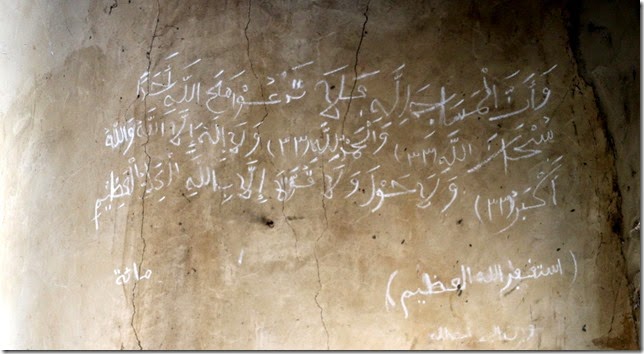 وَأَنَّ الْمَسَاجِدَ لِلَّهِ فَلَا تَدْعُوا مَعَ اللَّهِ أَحَدًا
سُبْحَانَ اللَّهِ (٣٣) وَالْحَمْدُ لِلَّهِ (٣٣) وَلَا إِلَهَ إِلَّا اللَّهُ وَاللَّهُ
أَكْبَرُ (٣٣) وَلَا حَوْلَ وَلَا قُوَّةَ إِلَّا بِاللَّهِ الْعَلِيِّ الْعَظِيمِ
(استغفر الله العظيم) مائة